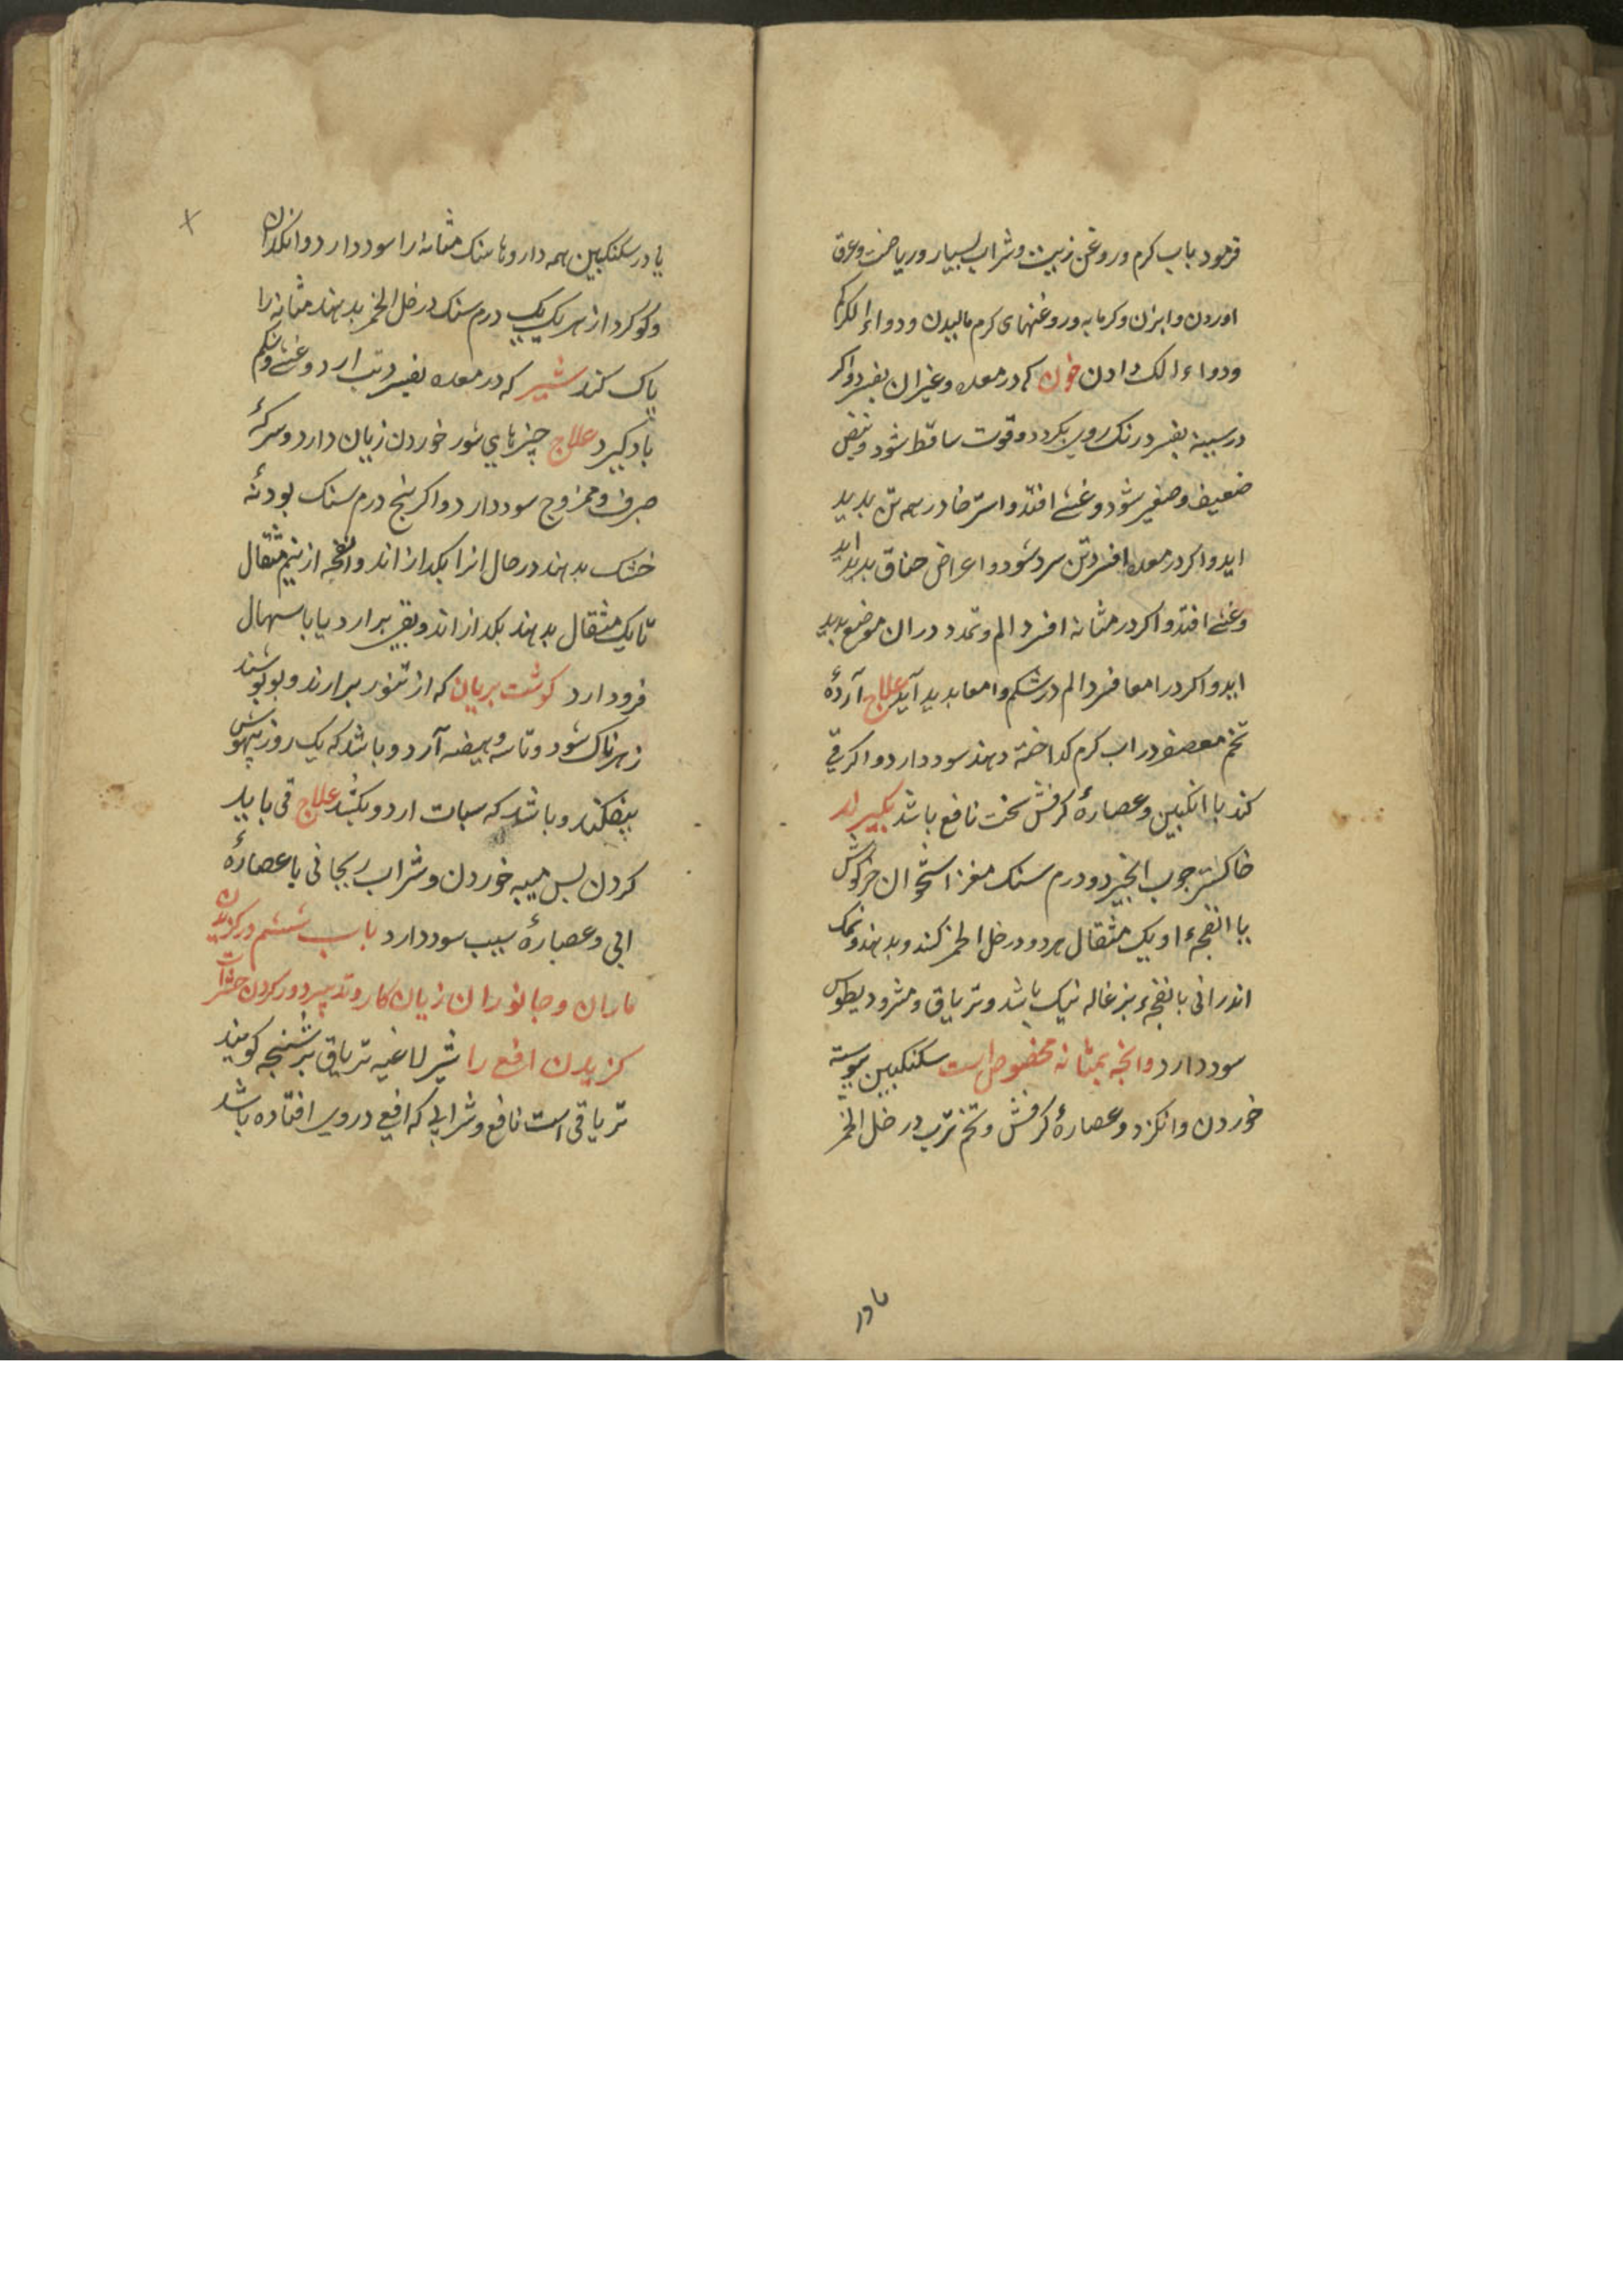 فرمود باب کرم و روغن زیت و شراب بسیار و ریاضت و عرق
اوردن و ابزن و کرمابه و روغنهای کرم مالیدن و دواء الکرکم
و دواء الک دادن خون که در معده و غیر ان بفسرد اکر
در سینه بفسرد رنک روی بکردد و قوت ساقط شود و نبض
ضعیف و صغیر شود و غشی افتد و استرخا در همه تن بدید
اید و اکر در معده افسرد تن سرد شود و اعراض خناق بدید اید
و غشی افتد و اکر در مثانه افسرد الم و تمدد در ان موضع بدید
اید و اکر در امعا فسرد الم در شکم و امعا بدید آید علاج آردهٔ
تخم معصفر در اب کرم کداخته دهند سود دارد و اکر قی
کند با انکبین و عصارهٔ کرفش سخت نافع باشد بکیرند
خاکستر چوب انجیر دو درم سنک مغز استخوان خرکوش
با انفحهٔ او یک مثقال هر دو در خل الخمر کنند و بدهند و نمک
اندرانی با نفحهٔ بزغاله نیک باشد و تریاق و مثرودیطوس
سود دارد وانجه بمثانه مخصوص است سکنکبین بیوسته
خوردن و انکزد و عصارهٔ کرفش و تخم ترب در خل الخمر
یا در
یا در سکنکبین همه داروها سنک مثانه را سود دارد و انکدان
و کوکرد از هر یک یک درم سنک در خل الخمر بدهند مثانه را
باک کند شیر که در معده بفسرد تب ارد و غشی و شکم
باد کیرد علاج چیزهای شور خوردن زیان دارد و سرکهٔ
صرف و ممزوج سود دارد و اکر بنج درم سنک بودنهٔ
خشک بدهند در حال انرا بکدازاند و انفحه از نیم مثقال
تا یک مثقال بدهند بکدازاند و بقی برارد یا باسهال
فرود ارد کوشت بریان که از تنور برارند و بوبوشند
زهرناک شود و تاسه و هیضه آرد و باشد که یک روز بیهوش
بیفکند و باشد که سبات ارد و بکشد علاج قی باید
کردن بس میبه خوردن و شراب ریحانی با عصارهٔ
ابی و عصارهٔ سیب سود دارد باب ششم در کزیدن
ماران و جانوران زیان کار و تدبیر دور کردن حشرات
کزیدن افعی را شیر لاغیه تریاق بزشنجه کویند
تریاقی است نافع و شرابی که افعی در وی افتاده باشد